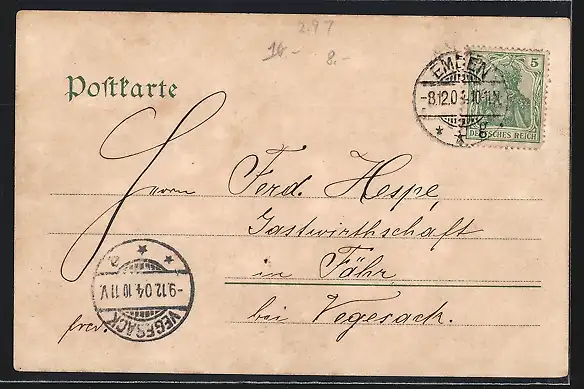 2.97
10.- 8.-
Postkarte
EMDEN
-8.12.04.10-11.V.
5
DEUTSCHES REICH
Herrn Ferd. Hespe,
Gastwirthschaft
in Fähr
bei Vegesack.
-9.12.04 10 11 V.
VEGESACK
frei.